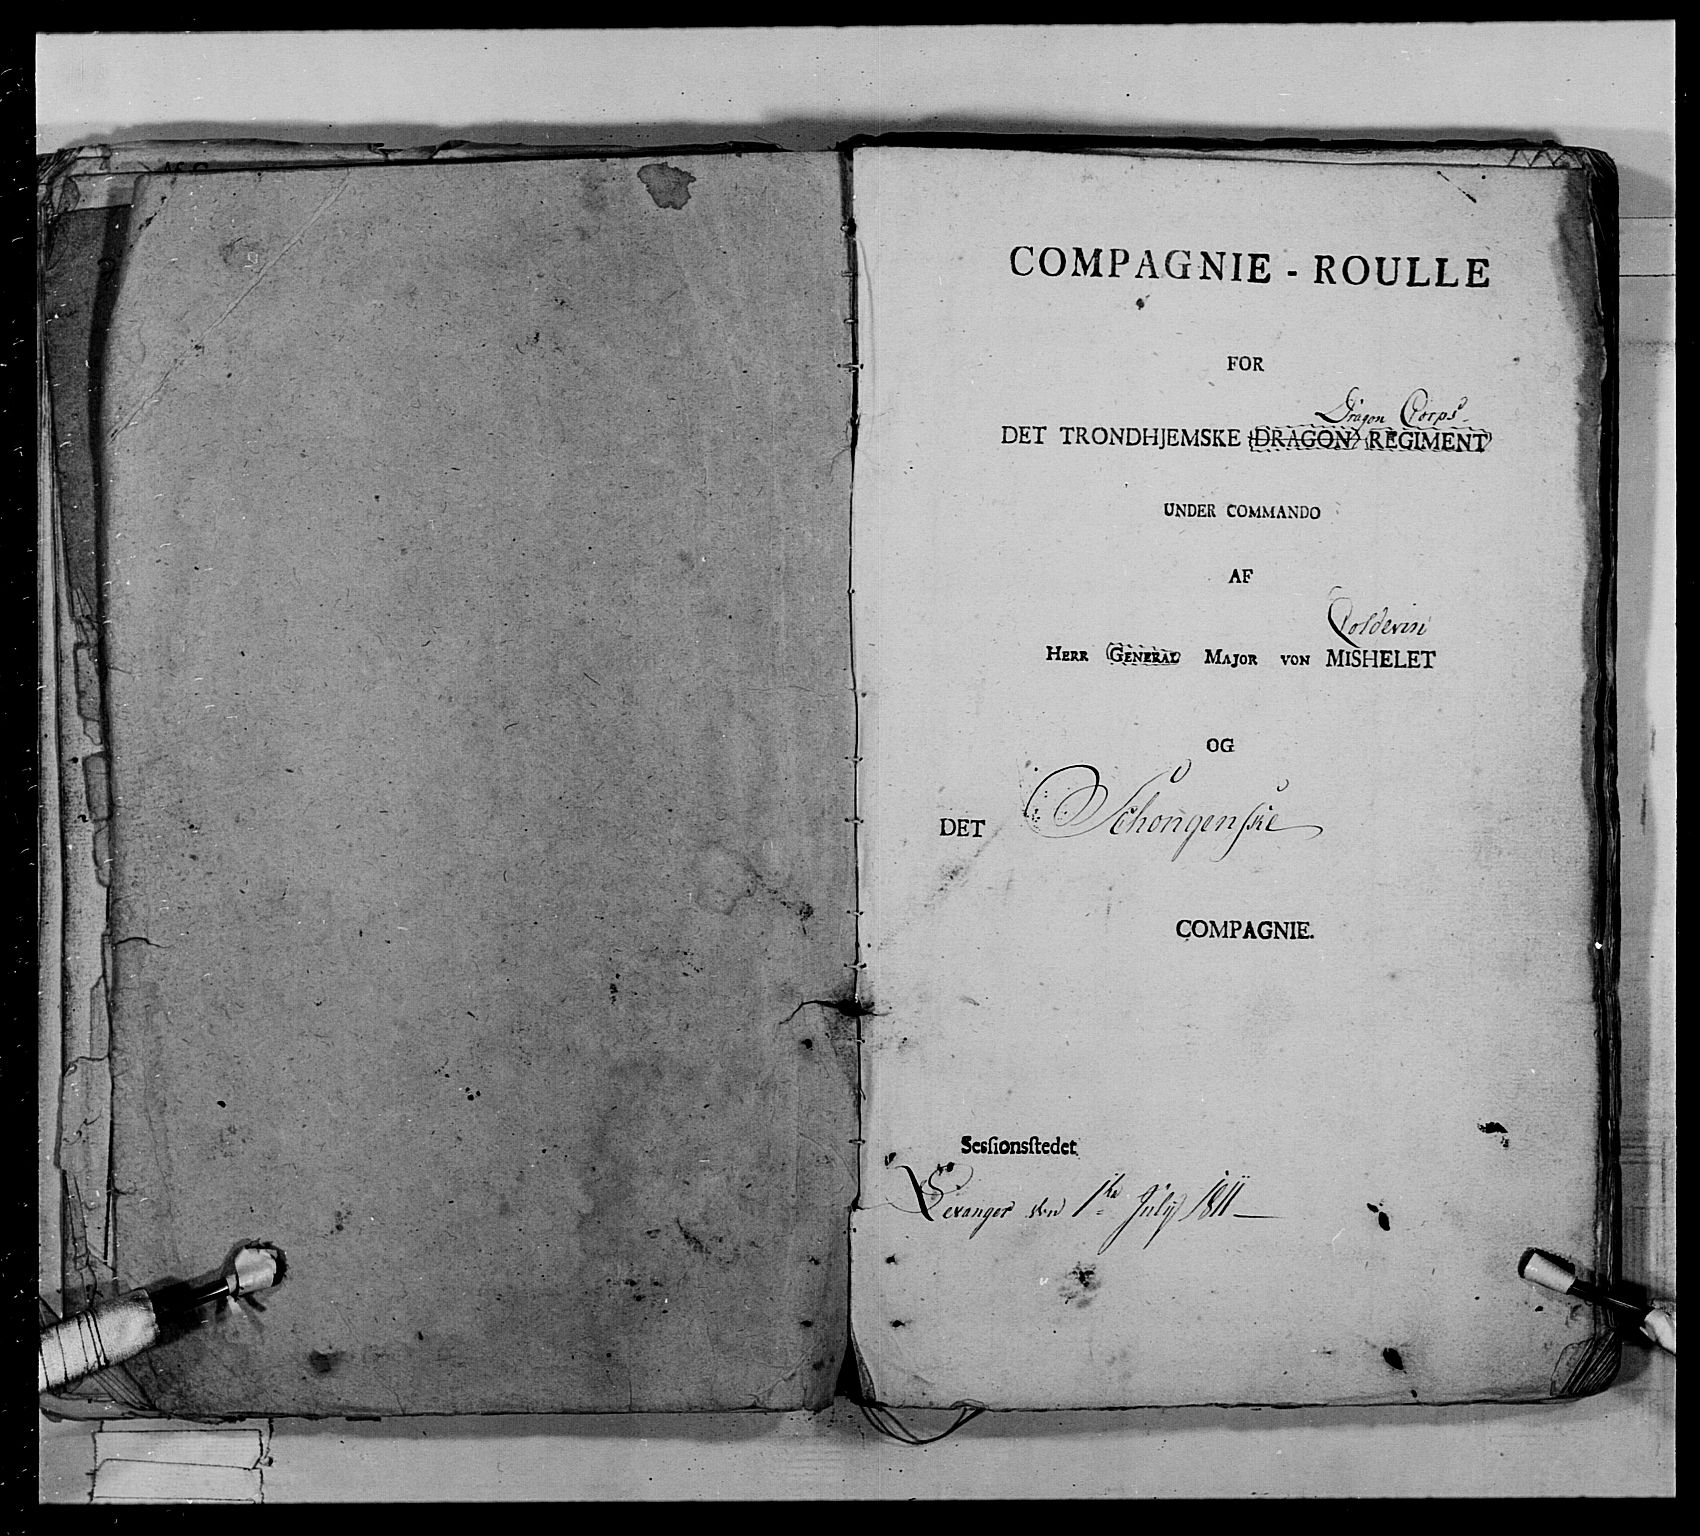 COMPAGNIE - ROULLE
FOR
Dragon Corps
DET TRONDHJEMSKE DRAGON REGIMENT
UNDER COMMANDO
AF
Coldevin
HERR GENERAL MAJOR VON MISHELET
OG
DET Schongenske
COMPAGNIE.
Sesſionsſtedet
Levanger den 1te July 1811